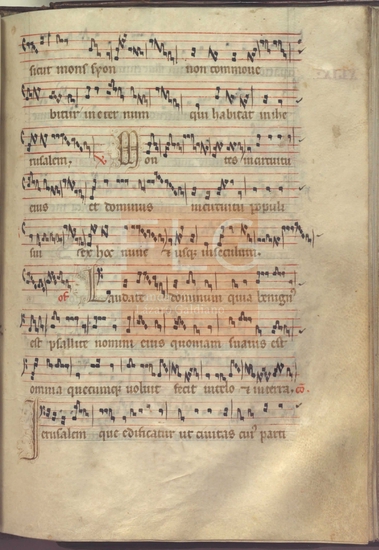 sicut mons syon non commove
bitur in eter num qui habitat in ihe
rusalem. V. Mon tes in circuitu
eius et dominus in circuitu populi
sui ex hoc nunc & usq; in seculum.
of Laudate dominum quia benign'
est psallite nomini eius quoniam suavis est
omnia quecumq; voluit fecit in celo & in terra.
Ierusalem que edificatur ut civitas cui' parti